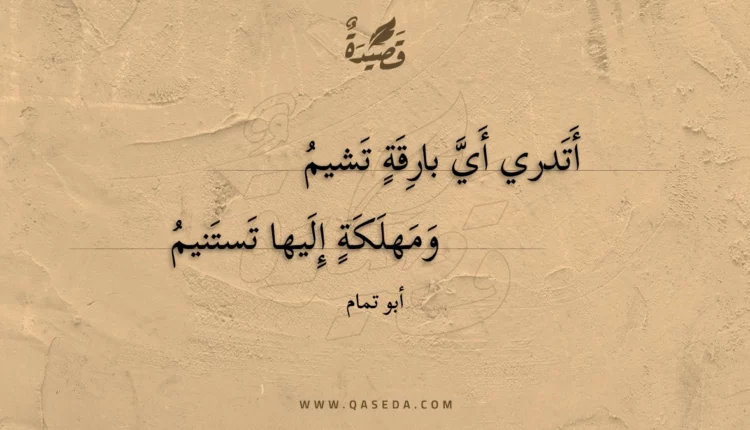 قَصِيدَةٌ
أَتَدري أَيَّ بارِقَةٍ تَشيمُ
وَمَهلَكَةٍ إِلَيها تَستَنيمُ
أبو تمام
WWW.QASEDA.COM